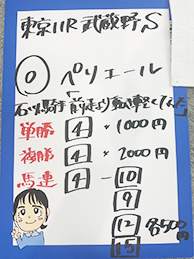 東京11R 武蔵野S
◎ ペリエール
石川騎手 前走より動き軽くなった
単勝 4 × 1000円
複勝 4 × 2000円
馬連 4 - 10
9
12 各500円
15